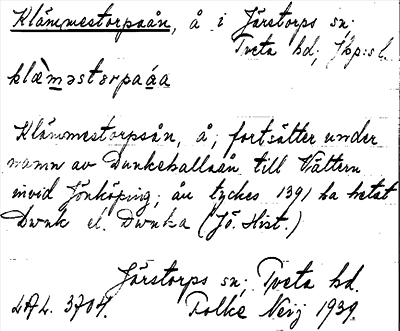 Klämmestorpaån, å i Järstorps sn;
Tveta hd; Jkp:s l.
klæ̀məstɐrpaáa
Klämmestorpsån, å; fortsätter under
namn av Dunkehallaån till Vättern
invid Jönköping; ån tyckes 1391 ha hetat
Dwnk el. Dwnka (Jö. Hist.)
Järstorps sn; Tveta hd.
LAL. 3704. Folke Neij 1939.